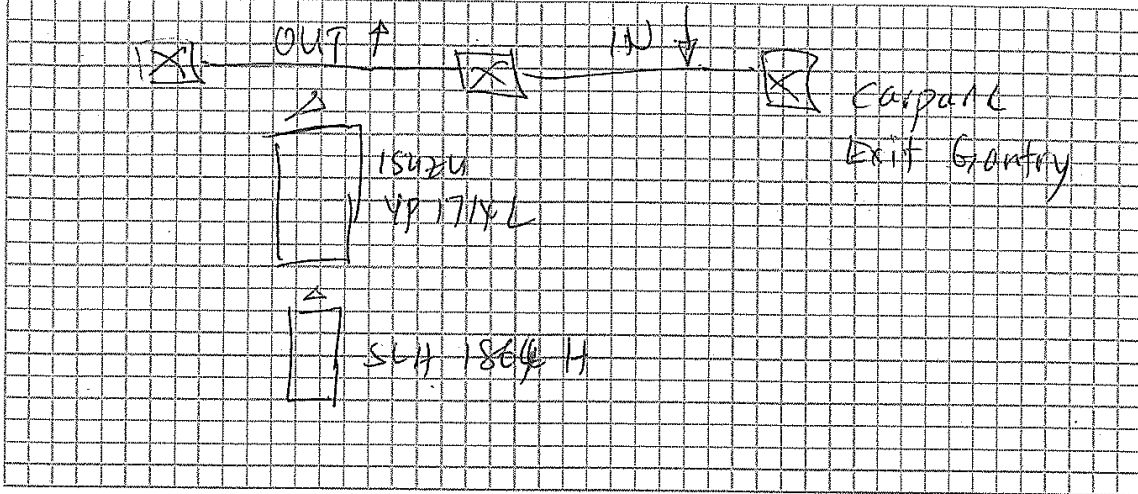 OUT ↑
IN ↓
Carpark
Exit Gantry
ISUZU
YP 1714 L
SLH 1864 H